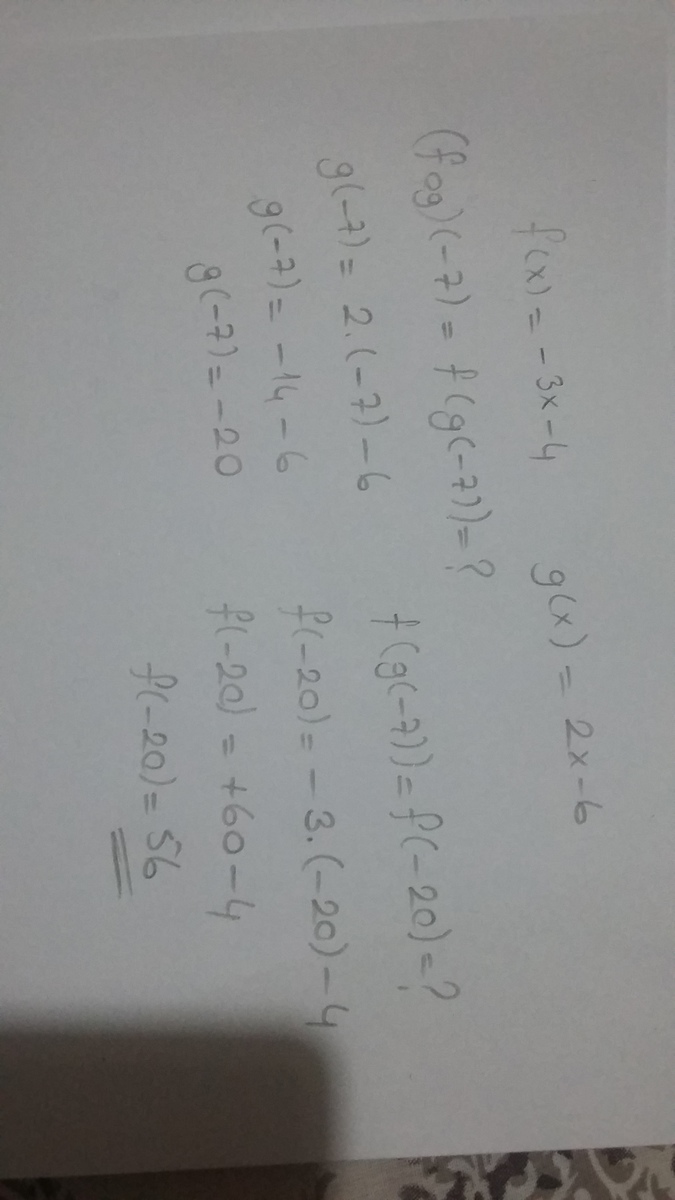 f(x) = -3x-4 g(x) = 2x-6
(fog)(-7) = f(g(-7)) = ?
g(-7) = 2.(-7)-6
g(-7) = -14-6
g(-7) = -20
f(g(-7)) = f(-20) = ?
f(-20) = -3.(-20)-4
f(-20) = +60-4
f(-20) = 56